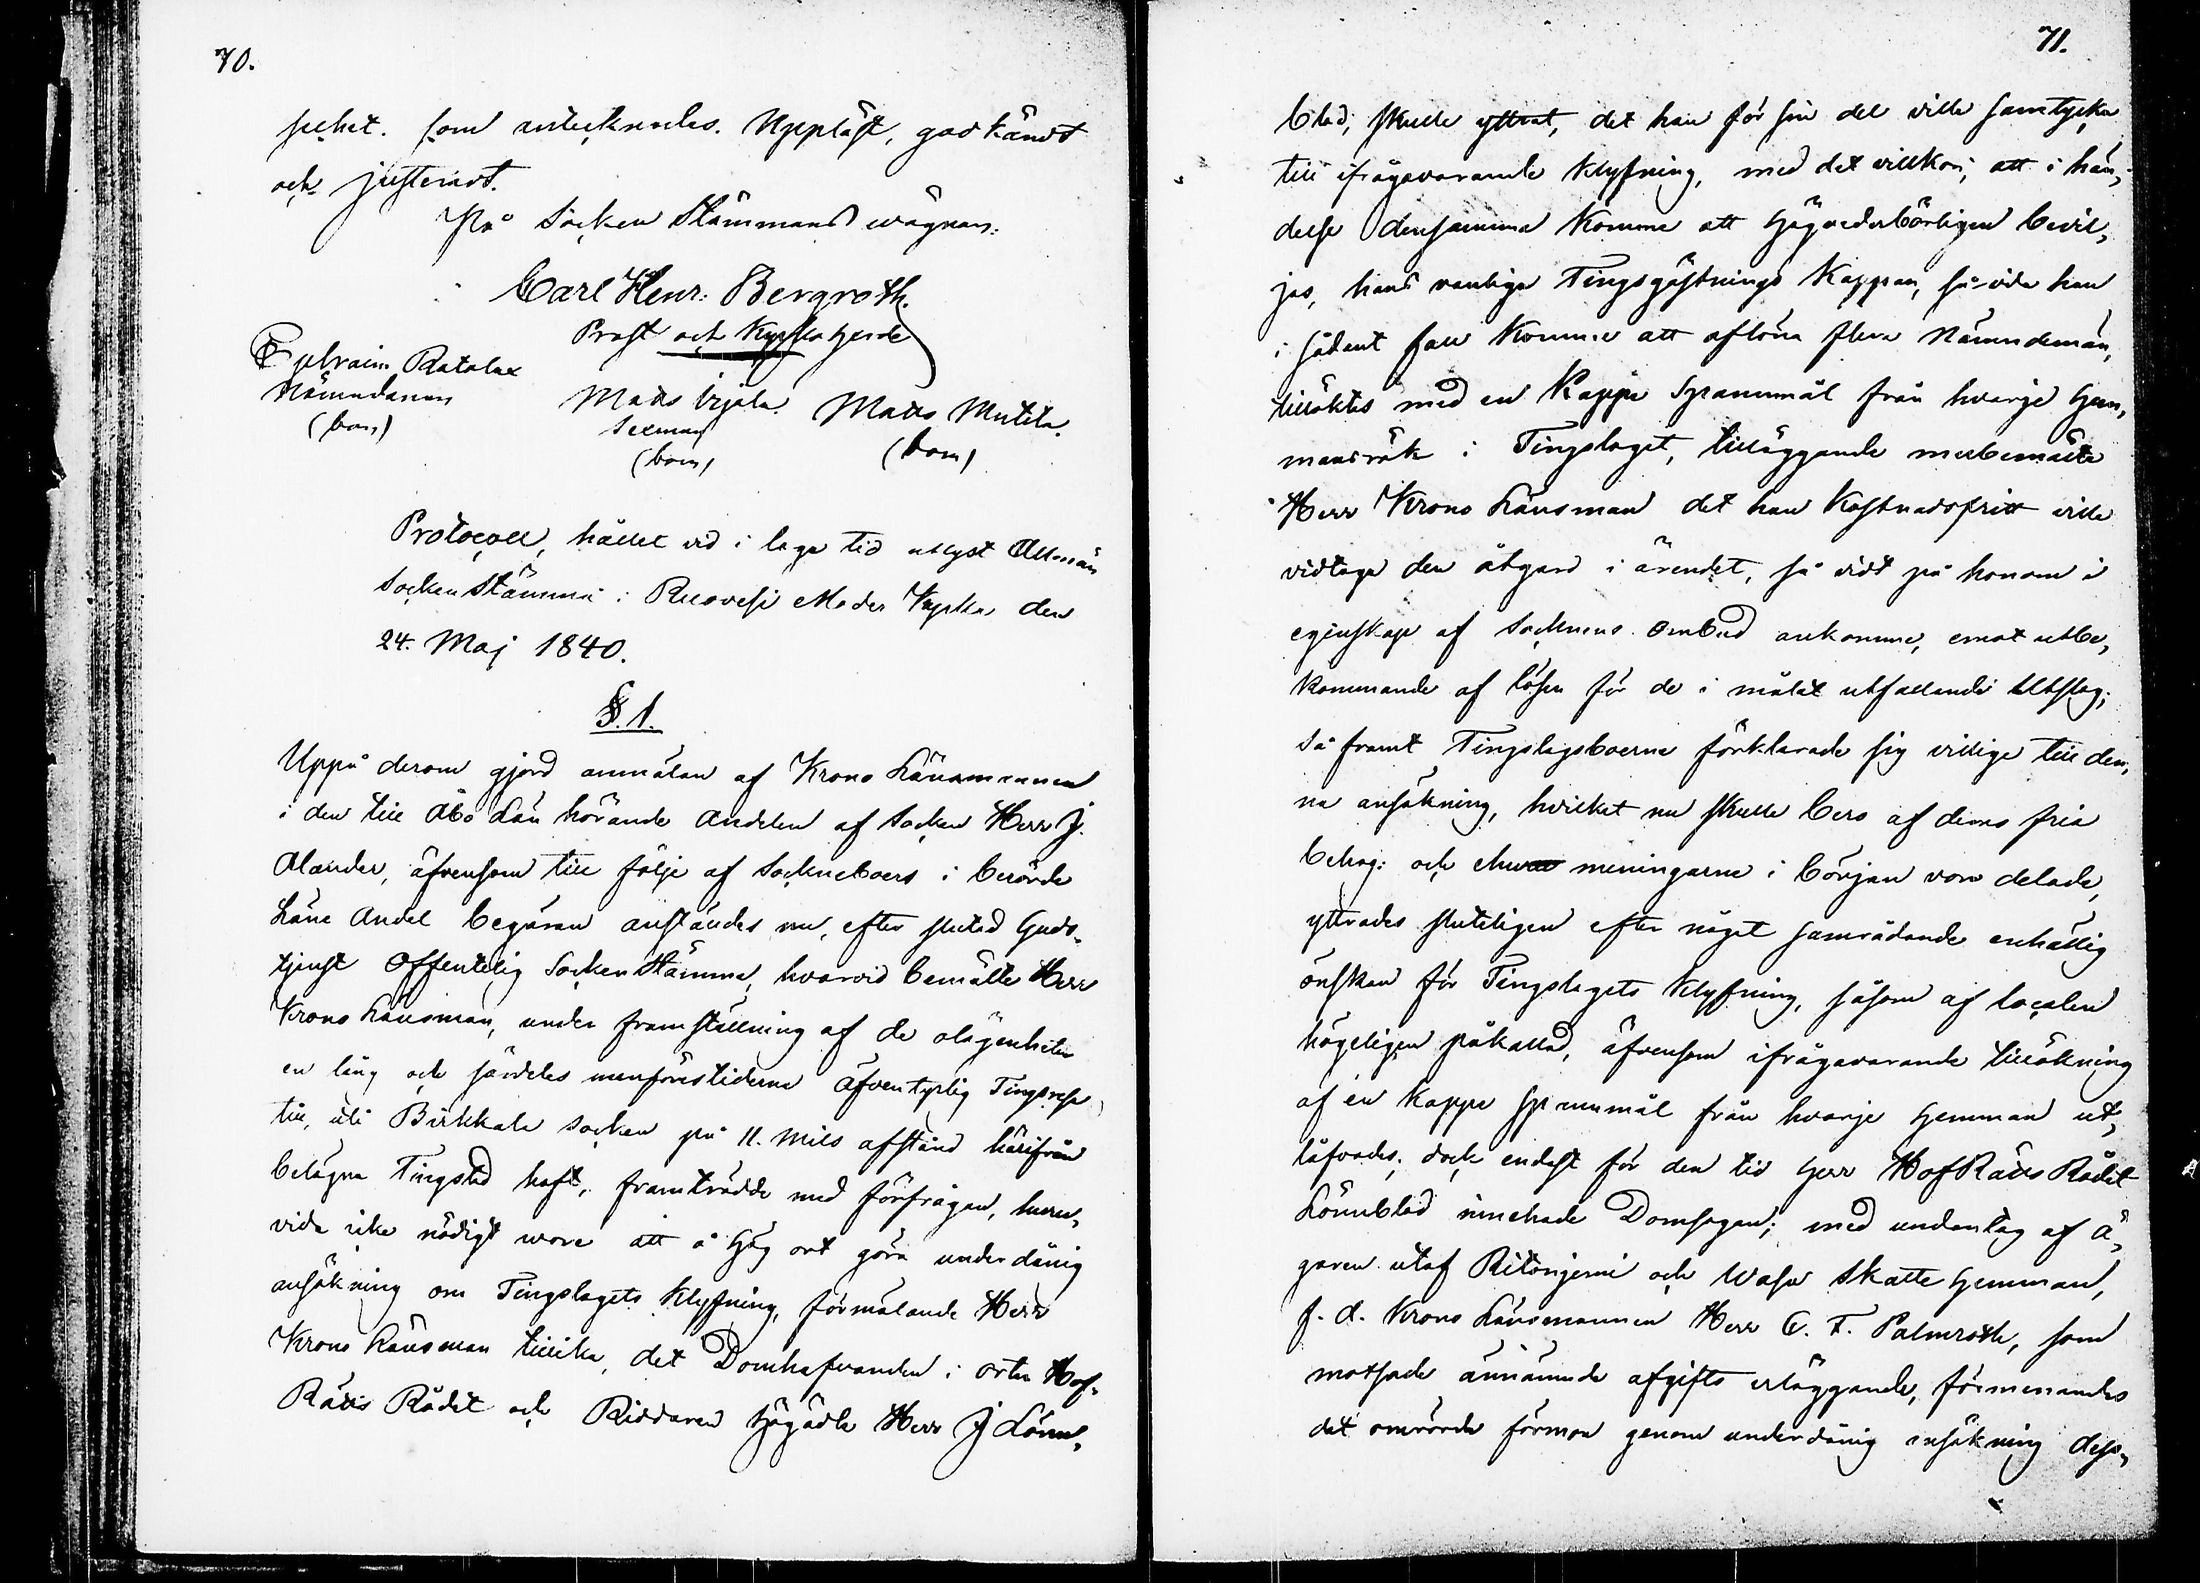 70.
sehet. som antecknades. Uppläst, godkändt
och justerat.
På Socken Stämmans wägnar.
Carl Henr: Bergroth.
Prost och Kyrkoherde
Ephraim Ratalax
Nämndeman
(bom)
Matts Erjala.
Sexman
(bom)
Matts Mutila.
(bom)
Protocoll, hållet vid i laga tid utlyst Allmän
Sockenstämma i Ruovesi Moder Kyrka den
24. Maj 1840.
§. 1.
Uppå derom gjord anmälan af Krono Länsmannen
i den till Åbo Län hörande andelen af Socken Herr J.
Olander, äfvensom till följe af Sockneboers i berörde
Läne Andel begäran anställdes nu, efter slutad Guds-
tjenst Offentelig Sockenstämma, hvarvid bemälte Herr
Krono Länsman, under framställning af de olägenheter
en lång och särdeles menföretiderna äfventyrlig Tingsresa
till, uti Birkkala Socken på 11. mils afstånd härifrån
belägna Tingsted haft, framträdde med förfrågan, huru,
vida icke nödigt wore att å Hög ort göra underdånig
ansökning om Tingslagets klyfning, förmälande Herr
Krono Länsman tillika, det Domhafvanden i orten Hof-
Rätts Rådet och Riddaren Högädle Herr J Lönn,
71.
blad, skulle yttrat, det han för sin del ville samtycka
till ifrågavarande klyfning, med det villkor, att i hän,
delse densamma komme att Högvederbörligen bevil,
jas, hans vanliga Tingsgästnings Kappan, så vida han
i sådant fall komme att aflöna flera Nämndemän,
tillöktes med en Kappe Spannmål från hvarje Hem,
mansrök i Tingslaget, tilläggande merbemälte
Herr Krono Länsman det han kostnadsfritt ville
vidtaga den åtgärd i ärendet, så vidt på honom i
egenskap af Socknens ombud ankomme, emot utbe,
kommande af lösen för de i målet utfallande Utslag;
så framt Tingslagsboerne förklarade sig villige till den,
na ansökning, hvilket nu skulle bero af deras fria
behag: och ehuru meningarne i början voro delade,
yttrades slutligen efter något samrådande enhällig
önskan för Tingslagets klyfning, såsom af localen
högeligen påkallad, äfvensom ifrågavarande tillökning
af en kappe Spannmål från hvarje Hemman ut,
läfvades, dock endast för den tid Herr HofRätts Rådet
Lönnblad innehade Domsagan; med undantag af ä,
garen utaf Ritoniemi och Wasu Skatte Hemman,
f. d. Krono Länsmannen Herr C. F. Palmroth, som
motsade ännämnde afgifts erläggande, förmenandes
det omrörde förmon genom underdånig ansökning dess,